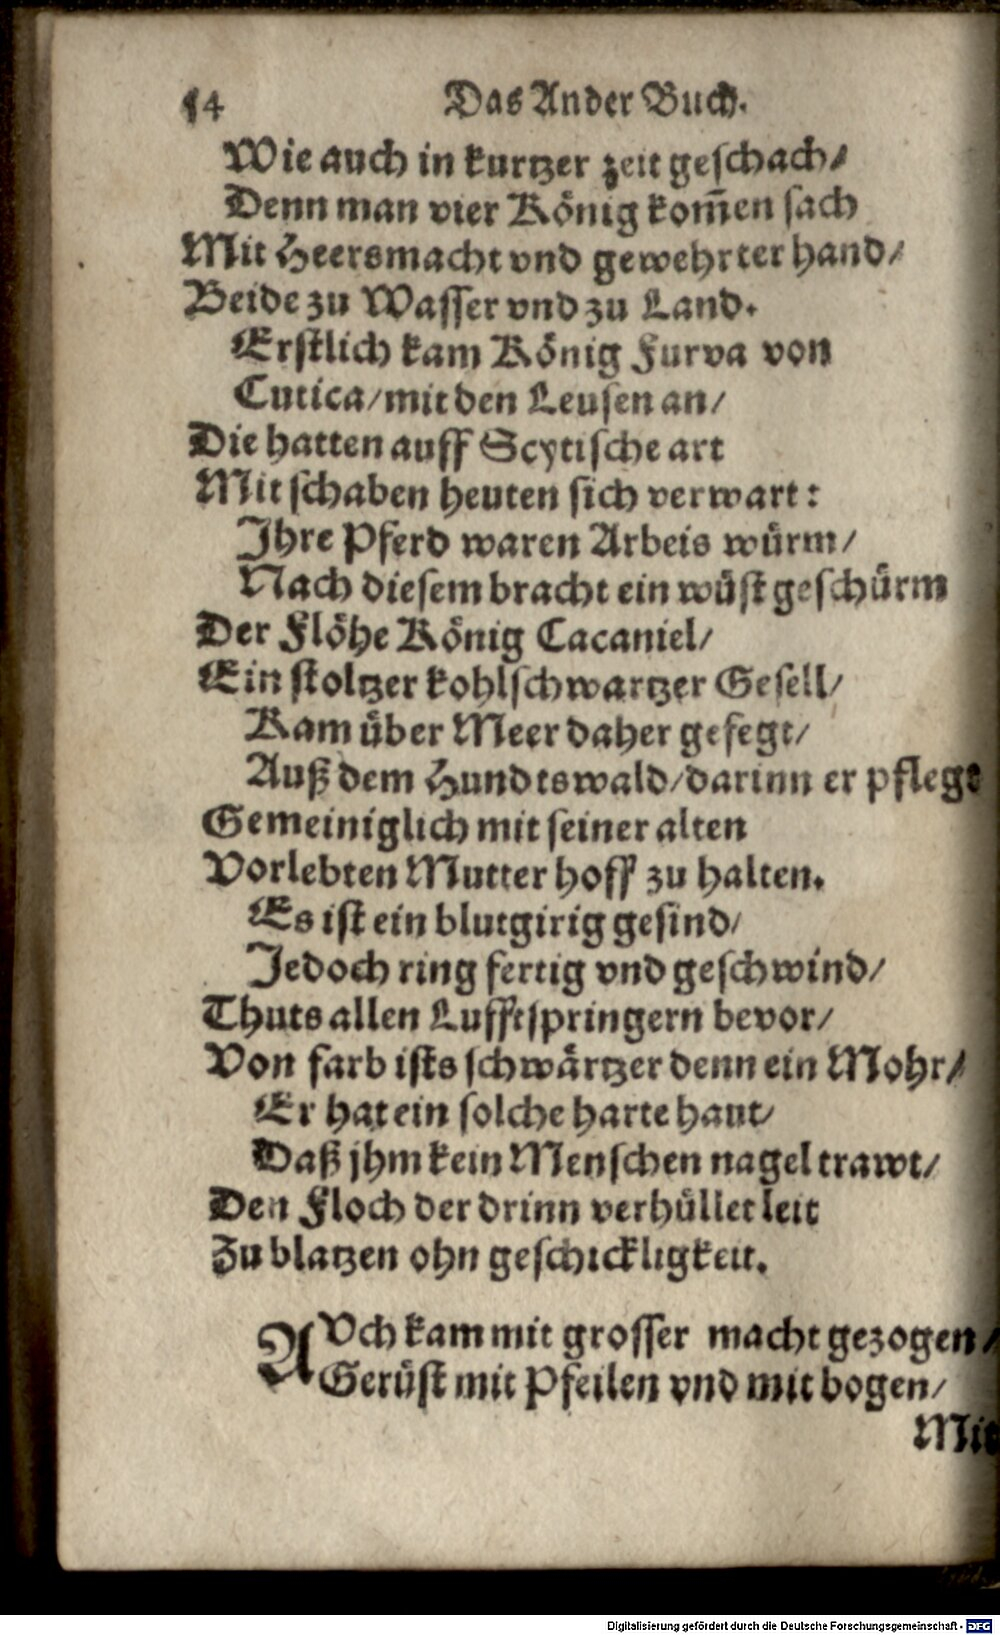 54 Das Ander Buch.
Wie auch in kurtzer zeit geschach/
Denn man vier König kom̃en sach
Mit Heersmacht vnd gewehrter hand/
Beide zu Wasser vnd zu Land.
Erstlich kam König Furva von
Cutica/mit den Leusen an/
Die hatten auff Scytische art
Mit schaben heuten sich verwart:
Ihre Pferd waren Arbeis würm/
Nach diesem bracht ein wüst geschürm
Der Flöhe König Cacaniel/
Ein stoltzer kohlschwartzer Gesell/
Kam über Meer daher gefegt/
Auß dem Hundtswald/darinn er pflegt
Gemeiniglich mit seiner alten
Vorlebten Mutter hoff zu halten.
Es ist ein blutgirig gesind/
Jedoch ring fertig vnd geschwind/
Thuts allen Lufftspringern bevor/
Von farb ists schwärtzer denn ein Mohr/
Er hat ein solche harte haut/
Daß jhm kein Menschen nagel trawt/
Den Floch der drinn verhüllet leit
Zu blatzen ohn geschickligkeit.
AVch kam mit grosser macht gezogen/
Gerüst mit Pfeilen vnd mit bogen/
Mit
Digitalisierung gefördert durch die Deutsche Forschungsgemeinschaft - DFG